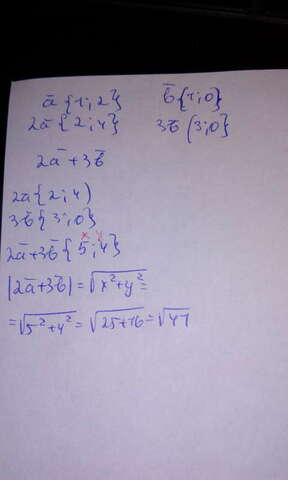 ā{1;2} b̄{1;0}
2ā{2;4} 3b̄{3;0}
2ā+3b̄
2ā{2;4)
3b̄{3;0}
x y
2ā+3b̄{5;4}
|2ā+3b̄|=√x²+y²=
=√5²+4²=√25+16=√41